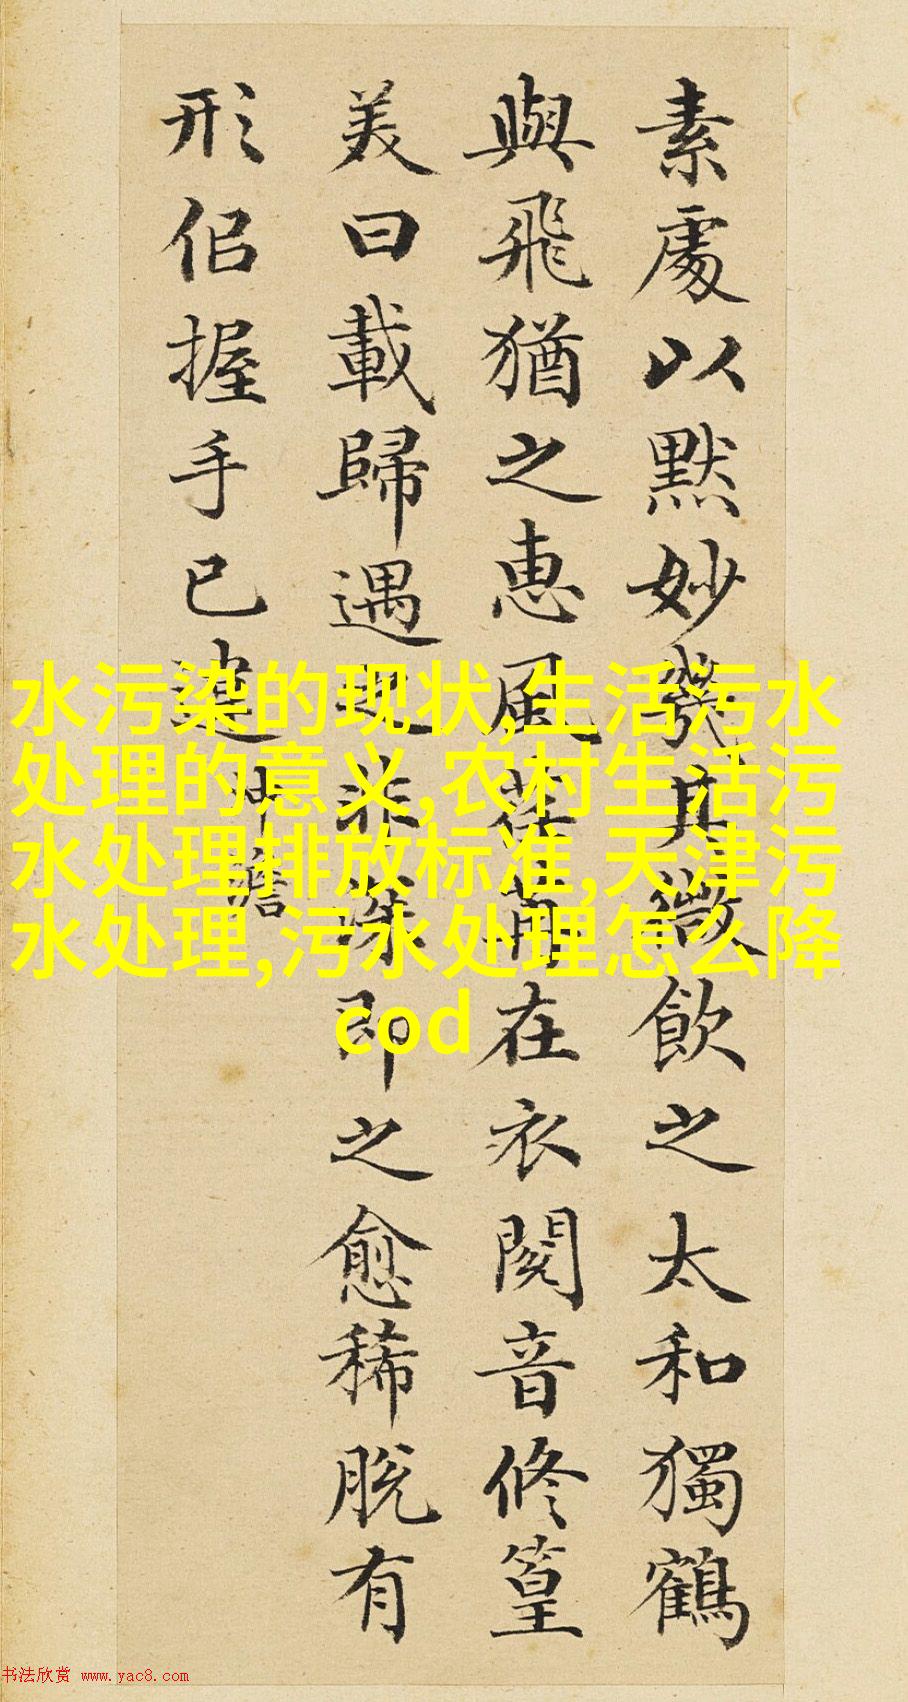 素處以默妙其微飲之太和獨鶴
與飛猶之惠風荏苒在衣閱音修篁
美曰載歸遇之匪深即之愈稀脫有
形佀握手已違
沖澹
水污染的现状,生活污水
处理的意义,农村生活污
水处理排放标准,天津污
水处理,污水处理怎么降
cod
书法欣赏 www.yac8.com